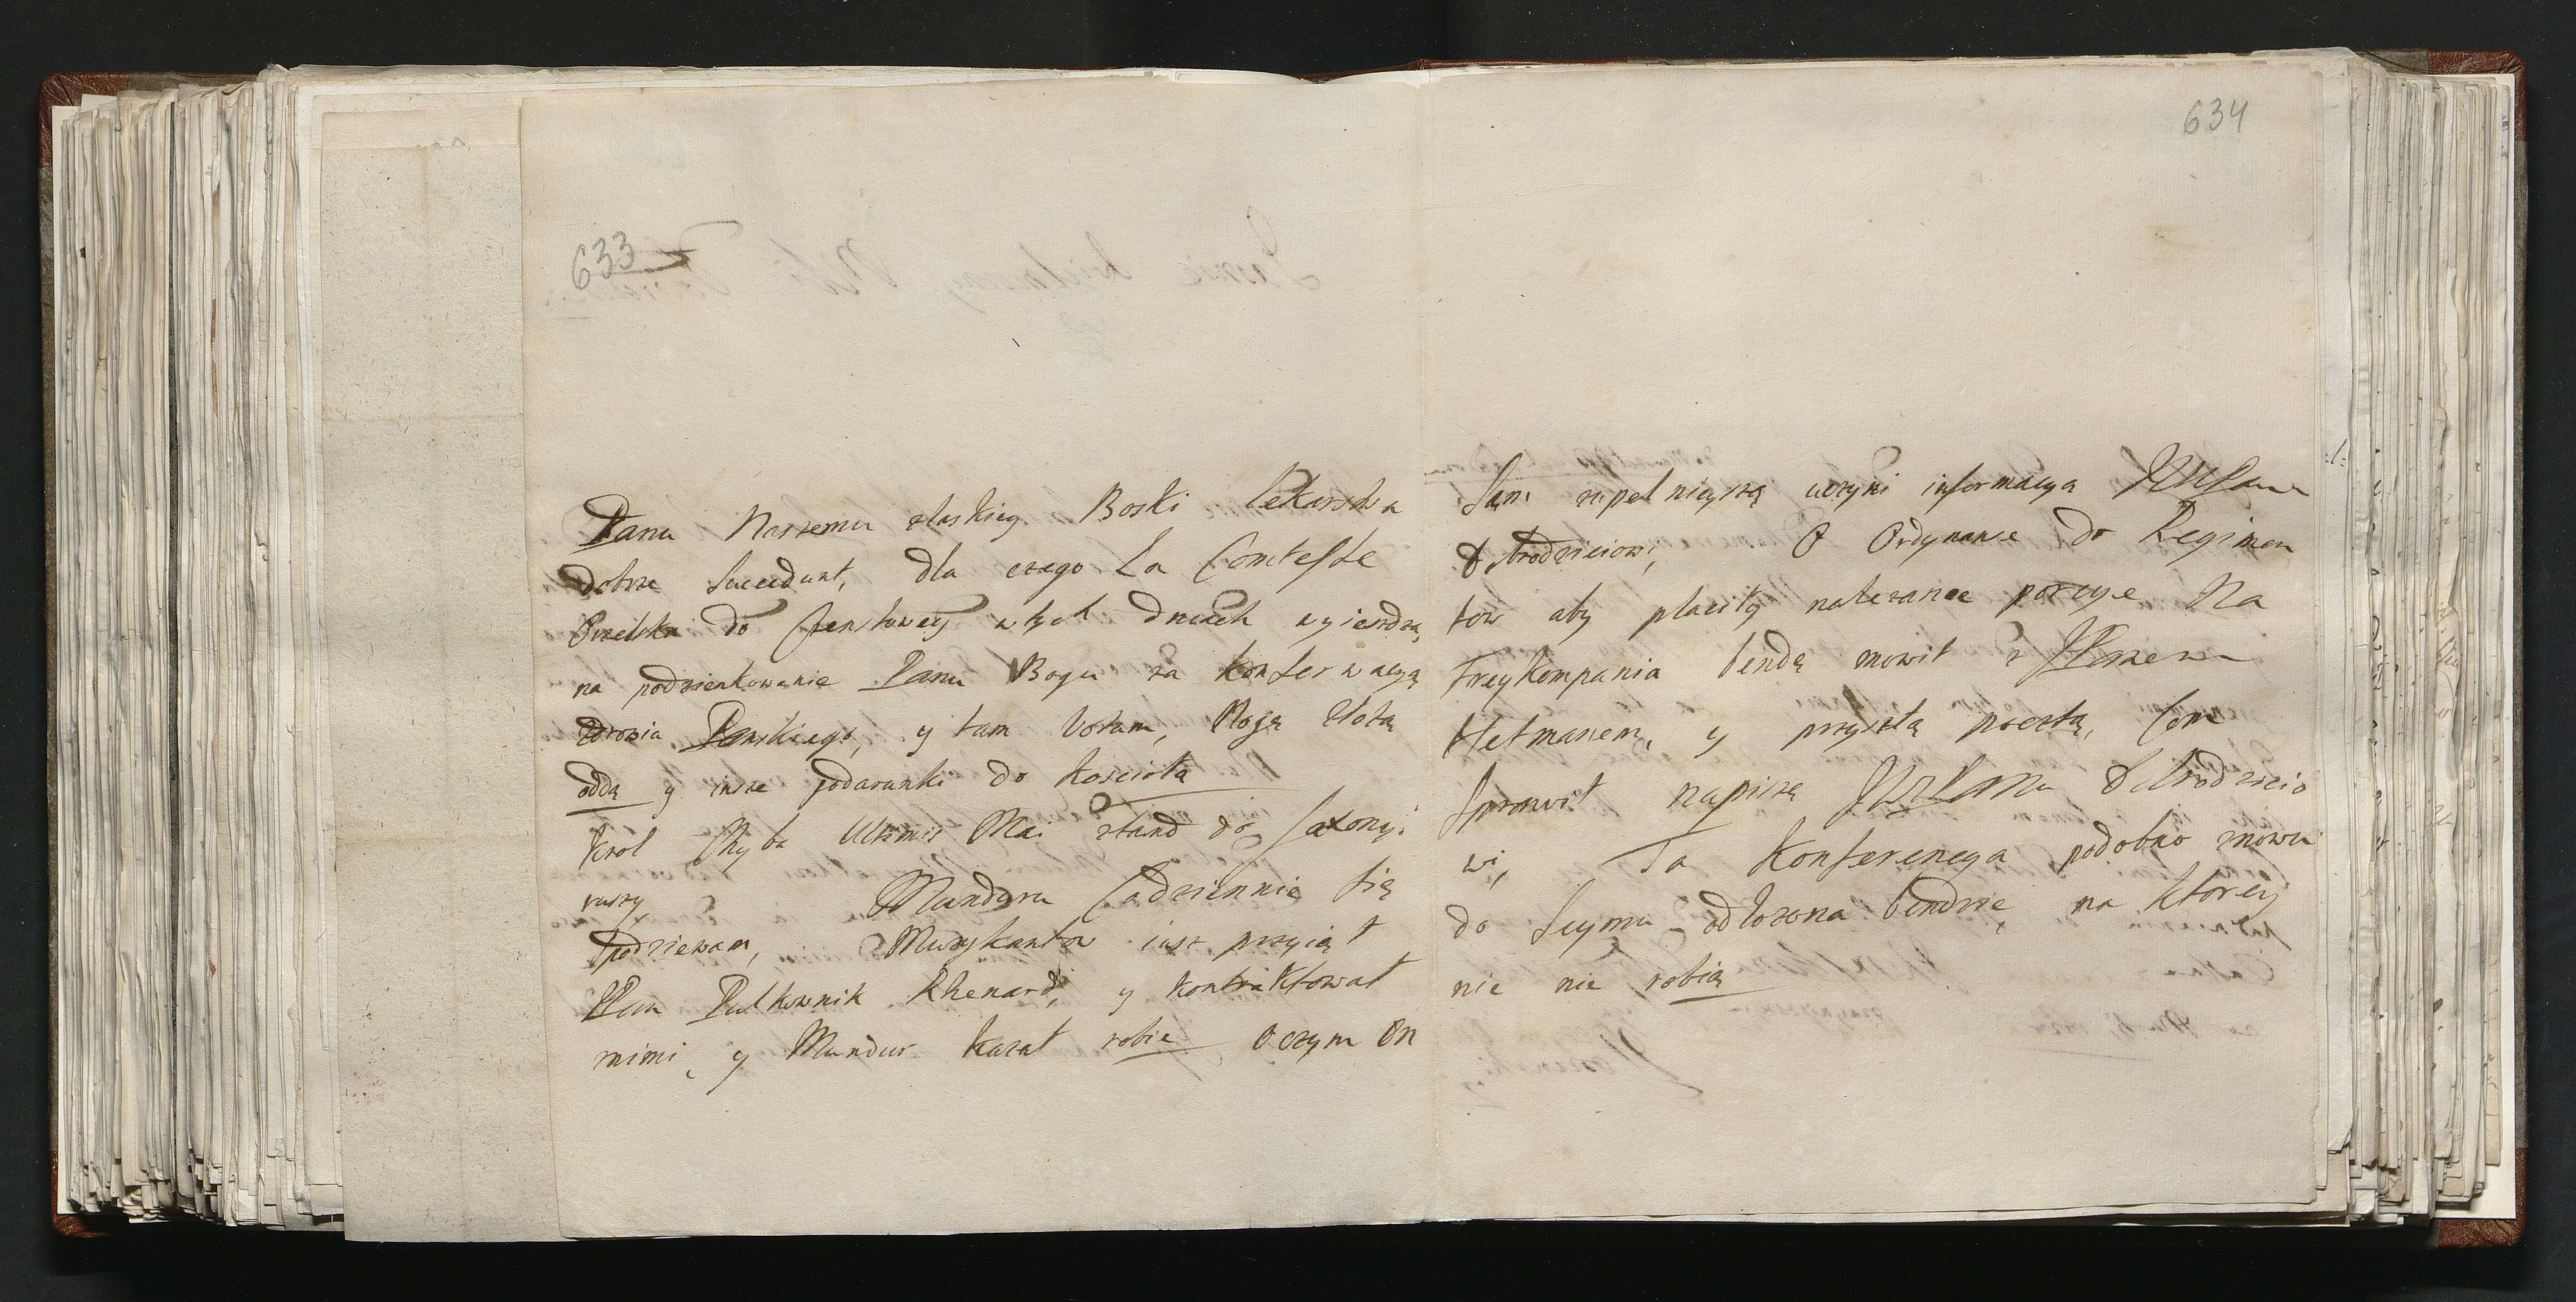 633
Panu Naszemu zlaskiey Boski lekarstwa
dobrze Succedunt, dla czego La Comtesse
Orzelska do Czenstowey w tych dniach wyiendza,
na podzienkowanie Panu Bogu za konserwacyą
zdrowia Panskiego, y tam Votum, Nogą złotą
oddą y insze podarunki do koscioła
krol Chyba Ultimis Mai ztand do Saxonyi
ruszy Mundóru Codziennie się
spodziewam, Muzykantów iusz przyiął
JPan Pulkownik Rhenard, y kontraktował
nimi, y Mundur kazał robie Oczym On
634
Sam zupełnieyszą uczyni informacyą
Dobrodzieiowi, O Ordynanse do Regimen
tow aby płaciły nalezance porcye Na
Freykompania bendą mowił z JPanem
Hetmanem, y przyszłą pocztą, Com
Sprawił napiszą Dobrodzieio
wi, Ta konferencya podobno znowu
do Seymu odłozona bendzie, na ktorey
nic nie robią